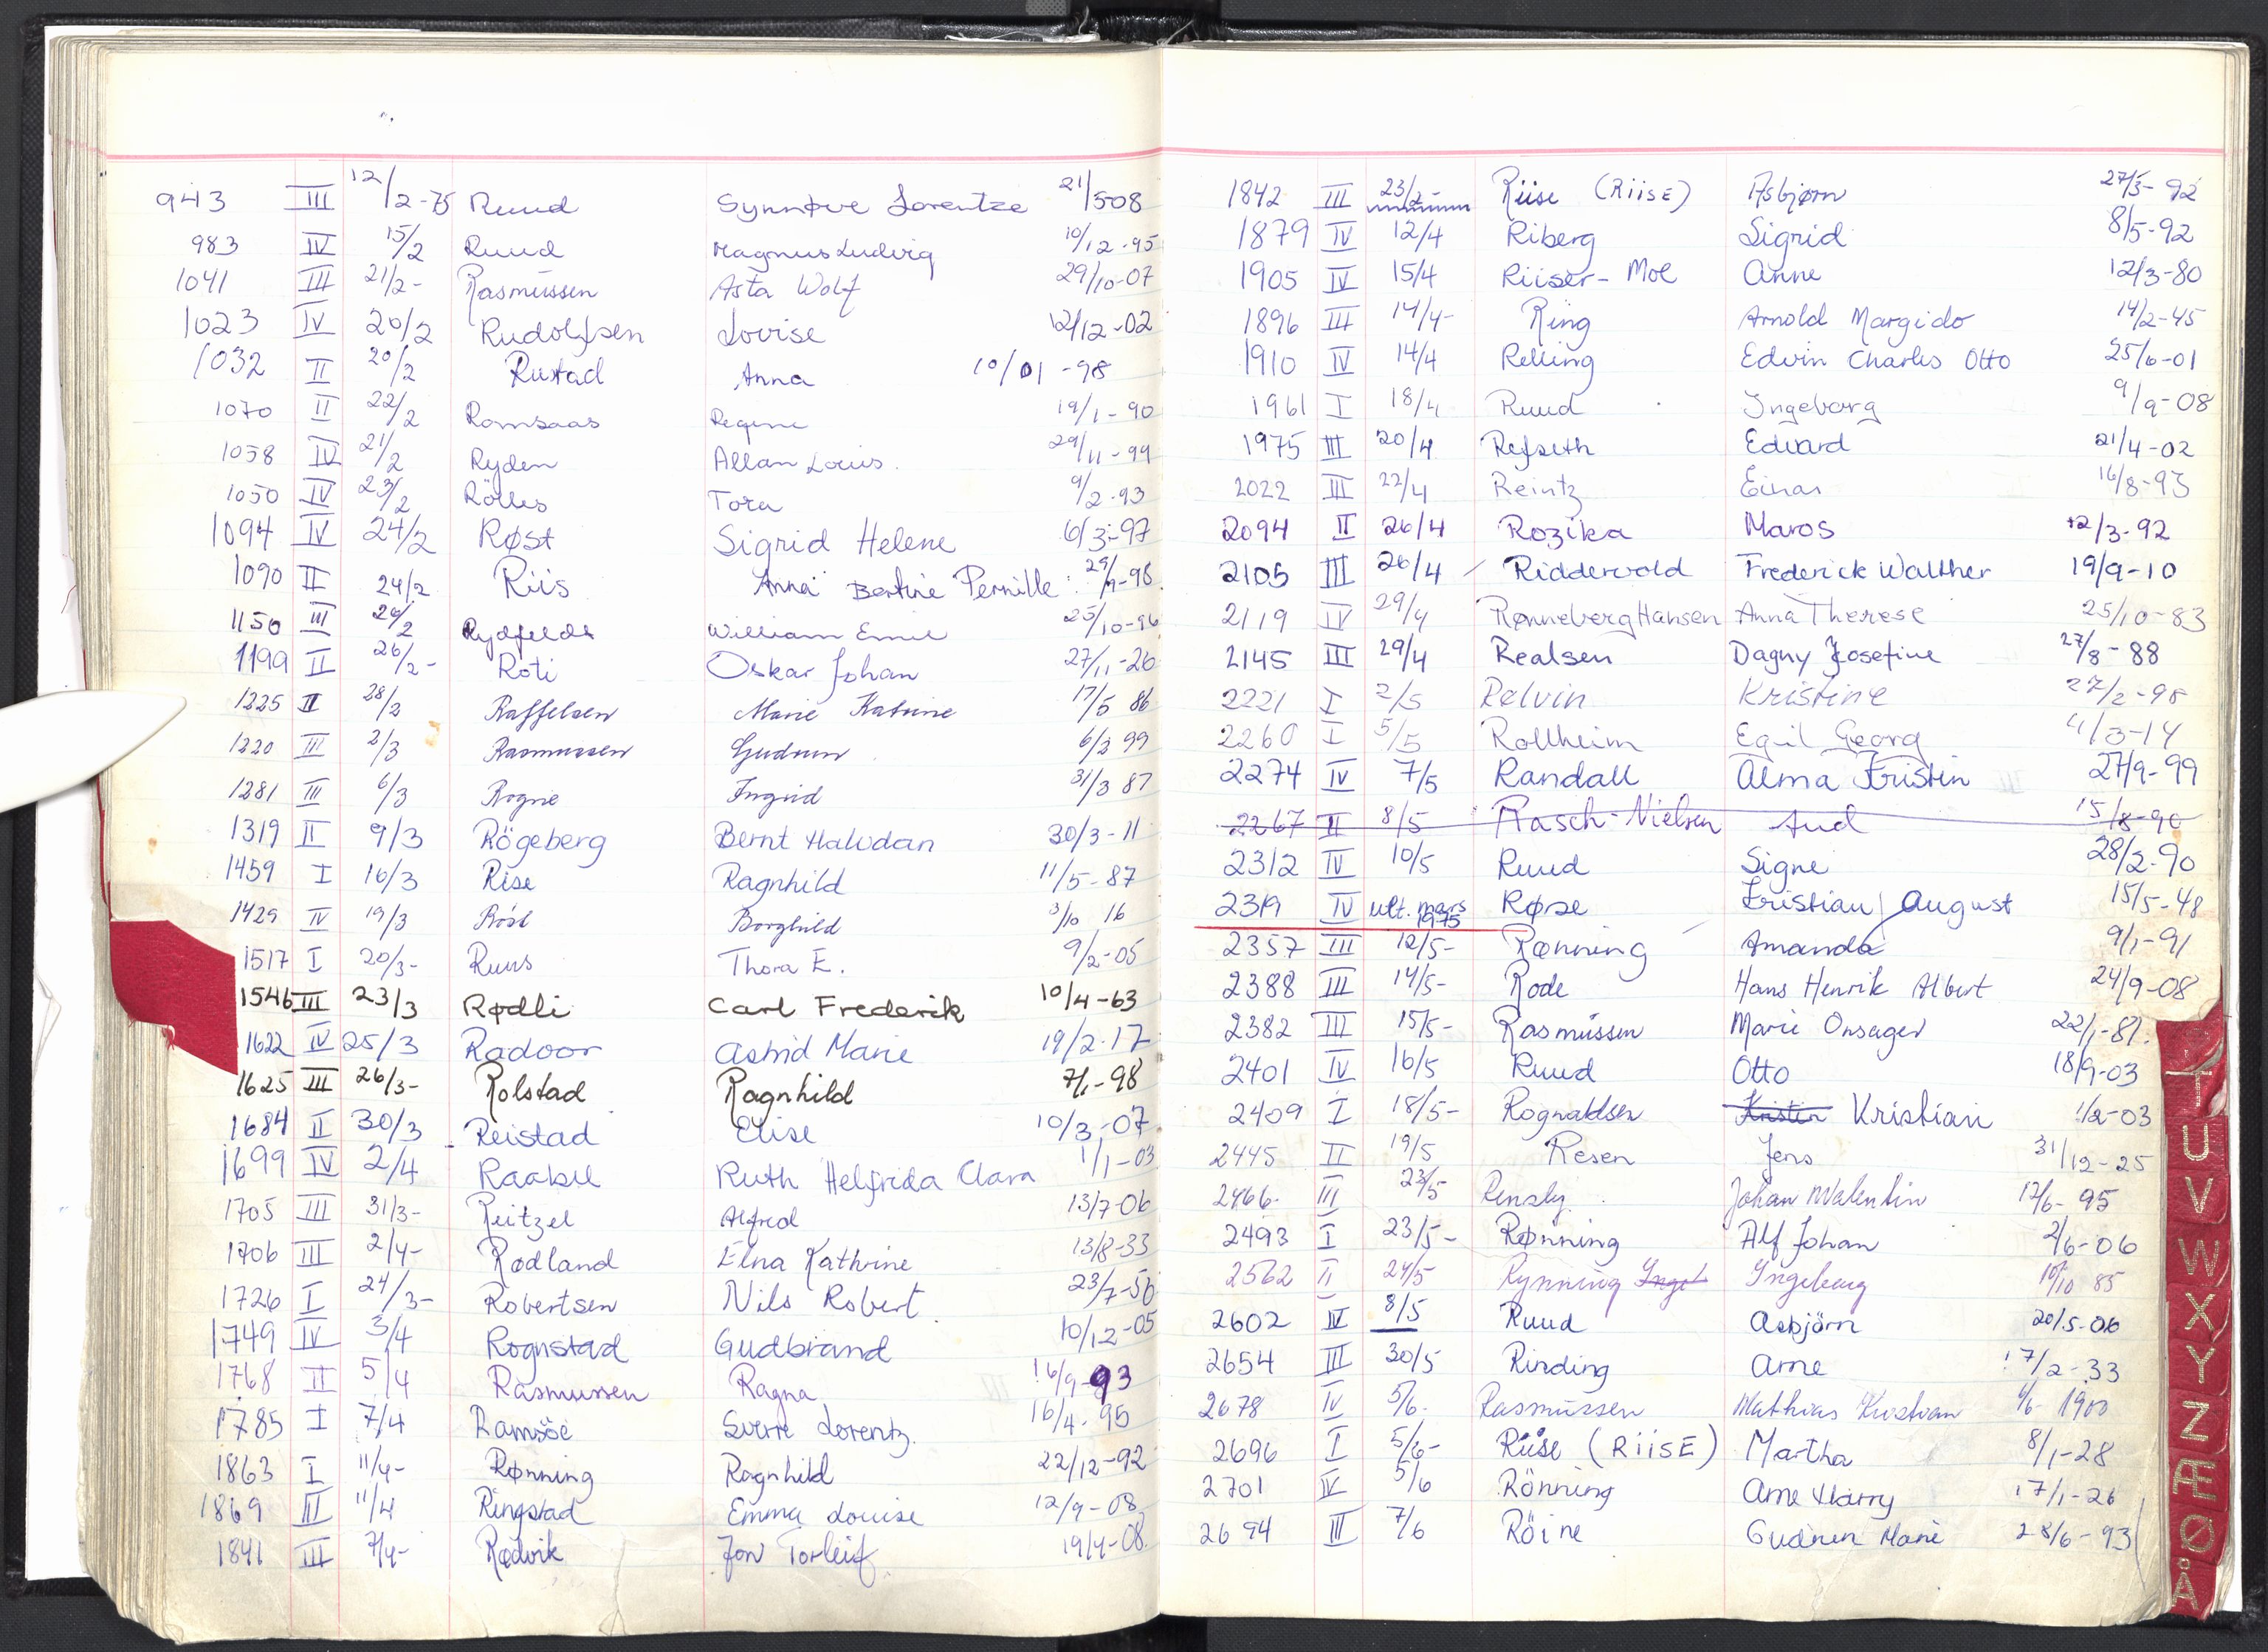 943 III 12/2-75 Ruud Synnøve Lorentze 21/508
983 IV 15/2 Ruud Magnus Ludvig 10/12-95
1041 III 21/2- Rasmussen Asta Wolf 29/10-07
1023 IV 20/2 Rudolfsen Lovise 12/12-02
1032 II 20/2 Rustad Anna 10/01-98
1070 II 22/2 Romsaas Regine 19/1-90
1058 IV 21/2 Ryden Allan Louis. 29/11-99
1050 IV 23/2 Rölles Tora 9/2-93
1094 IV 24/2 Røst Sigrid Helene 6/3-97
1090 II 24/2 Riis Anna Bertine Pernille 29/9-98
1150 III 24/2 Rydfeldt William Emil 25/10-96
1199 II 26/2- Roti Oskar Johan 27/11-26
1225 II 28/2 Raffelsen Marie Katrine 17/5 86
1220 III 2/3 Rasmussen Gudrun 6/2 99
1281 III 6/3 Rogne Ingrid 31/3 87
1319 II 9/3 Rögeberg Bernt Halvdan 30/3-11
1459 I 16/3 Rise Ragnhild 11/5-87
1429 IV 19/3 Röst Borghild 3/10 16
1517 I 20/3- Ruus Thora E. 9/2-05
1546 III 23/3 Rødli Carl Frederik 10/4-63
1622 IV 25/3 Radoor Astrid Marie 19/2-17
1625 III 26/3- Rolstad Ragnhild 7/1-98
1684 II 30/3 Reistad Elise 10/3-07
1699 IV 2/4 Raabel Ruth Helfrida Clara 1/1-03
1705 III 31/3- Reitzel Alfred 13/7-06
1706 III 2/4- Rødland Elna Kathrine 13/8-33
1726 I 24/3- Robertsen Nils Robert 23/7-56
1749 IV 3/4 Rognstad Gudbrand 10/12-05
1768 II 5/4 Rasmussen Ragna 16/9-93
1785 I 7/4 Ramsöe Sverre Lorentz. 16/4-95
1863 I 11/4- Rønning Ragnhild 22/12-92
1869 III 11/4 Ringstad Emma Louise 12/9-08
1841 III 7/4- Rødvik Jon Torleif 19/4-08
1842 III 23/2- Riise (RiiSE) Asbjørn 27/3-92
1879 IV 12/4 Riberg Sigrid 8/5-92
1905 IV 15/4 Riiser-Moe Anne 12/3-80
1896 III 14/4- Ring Arnold Margido 14/2-45
1910 IV 14/4 Relling Edvin Charles Otto 25/6-01
1961 I 18/4 Ruud Ingeborg 9/9-08
1975 III 20/4 Refseth Edvard 21/4-02
2022 III 22/4 Reintz Einar 16/8-93
2094 II 26/4 Rozika Maros 12/3-92
2105 III 26/4 Riddervold Frederick Walther 19/9-10
2119 IV 29/4 Rønneberg Hansen Anna Therese 25/10-83
2145 III 29/4 Realsen Dagny Josefine 27/8-88
2221 I 2/5 Relvin Kristine 27/2-98
2260 I 5/5 Rollheim Egil Georg 4/3-14
2274 IV 7/5 Randall Alma Kristin 27/9-99
2267 II 8/5 Rasch-Nielsen Aud 15/8-90
2312 IV 10/5 Ruud Signe 28/2-90
2319 IV ult. mars 1975 Rørse Kristian August 15/5-48
2357 III 12/5- Rønning Amanda 9/1-91
2388 III 14/5- Rode Hans Henrik Albert 24/9-08
2382 III 15/5- Rasmussen Marie Onsager 22/1-81.
2401 IV 16/5 Ruud Otto 18/9-03
2409 I 18/5- Rognaldsen Kristin Kristian 1/2-03
2445 II 19/5 Resen Jens 31/12-25
2466. III 23/5 Rensby. Johan Walentin 12/6-95
2493 I 23/5- Rønning Alf Johan 2/6-06
2562 II 24/5 Rynning Inget Ingeborg 10/10 85
2602 IV 8/5 Ruud Asbjörn 20/5-06
2654 III 30/5 Rinding Arne 17/2-33
2678 IV 5/6. Rasmussen Mathias Kristian 4/6-1900
2696 I 5/6- Riise (RiiSE) Martha 8/1-28
2701 IV 5/6 Rönning Arne Harry 17/1-26
2694 III 7/6 Röine Gudrun Marie 28/6-93
T
U
V
W
X
Y
Z
Æ
Ø
Å